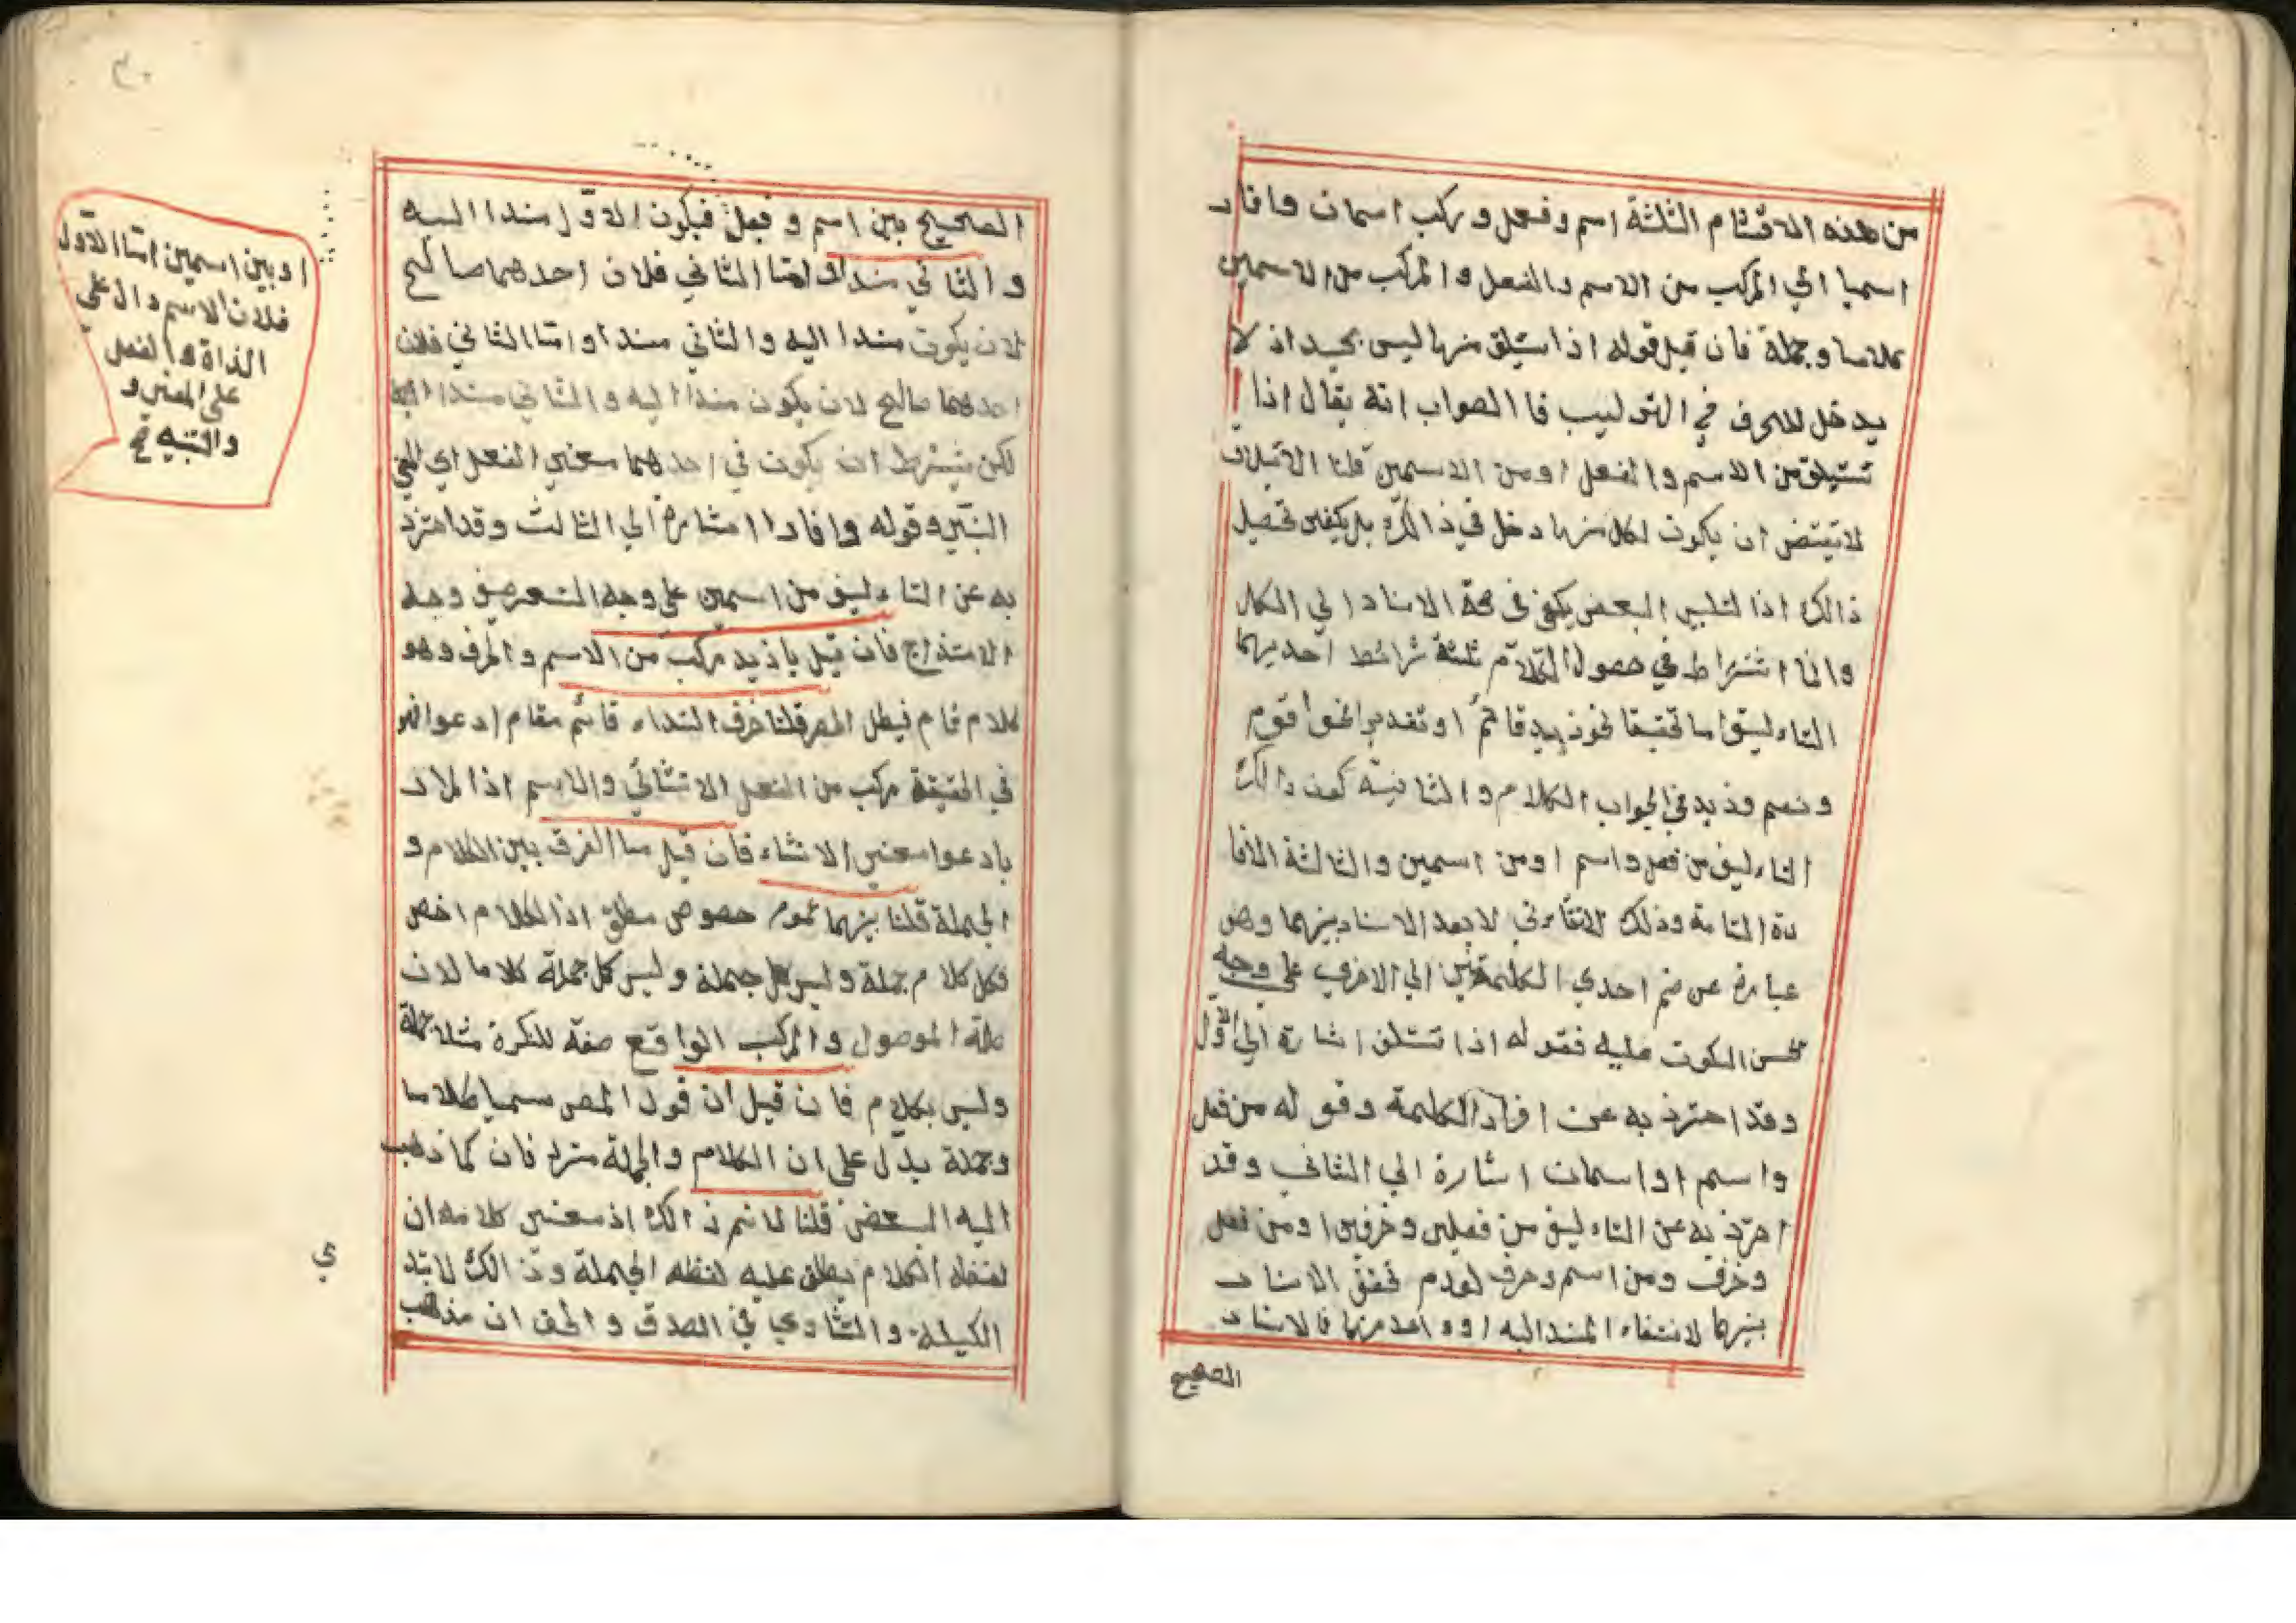 من هذه الاقسام الثلثة اسم وفعل وركب اسمان وافاد
اسميا الي المركب من الاسم والفعل والمركب من الاسمين
كلاما وجملة فان قيل قوله اذا ستيلق منها ليس بجيد اذ لا
يدخل للحرف في التوليب فا الصواب انه يقال اذا
تستيلق من الاسم والفعل اومن الاسمين قلنا الاتيلاف
لاتيتضي ان يكون لكل منها دخل في ذالك بل يكفي تحصيل
ذالك اذا لتلبس البعض يكفي في صحة الاسناد الي الكل
وانما اشتراط في حصول الكلام ثلثة شرائط احديهما
التاءليق اما تحقيقا نحو زيد قائم او تقديرا نحوا قوم
ونعم وزيد في الجواب الكلام والثانية كون ذالك
التاءليف من فعل واسم اومن اسمين والثالثة الافا
دة التامة وذلك لاتقاءتي لا بعد الاسناد بينهما وهو
عبارة عن ضم احدي الكلمتين الي الاخرب علي وجه
يحسن السكوت عليه فقوله اذا تستلق اشارة الي الاول
وقد احترز به عن افراد الكلمة وقوله من فعل
واسم او اسمان اشارة الي الثاني وقد
احترز به عن التاءليف من فعلين وحرفين اومن فعل
وحرف ومن اسم وحرف لعدم تحقق الاسناد
بينهما لانتفاء المسند اليه اوواحد منهما فالاسناد
الصحيح
٣٠
الصحيح بين اسم وفعل فيكون الاول مسندا اليه
والثاني مسندا واما الثاني فلان احدهما صالح
لان يكون مسندا اليه والثاني مسندا واما الثاني فلان
احدهما صالح لان يكون مسندا اليه والثاني مسندا اليه
لكن يشترط ان يكون في احدهما معني الفعل اي
وقوله وافادا اشارة الي الثالث وقد احترز
به عن التاءليف من اسمين علي وجه التعريض وجه
الاستدراج فان قيل يا زيد مركب من الاسم والحرف وهو
كلام تام فيطل الحصر قلنا حرف النداء قائم مقام ادعوا فهو
في الحقيقة مركب من الفعل الانشائي والاسم اذا لمراد
بادعوا معني الانشاء فان قيل ما الفرق بين الكلام و
الجملة قلنا بينهما عموم حصوص مطلق اذا لكلام اخص
فكل كلام جملة وليس كل جملة وليس كل جملة كلاما لان
صلة الموصول والمركب الواقع صفة للنكرة مثلا جملة
وليس بكلام فان قيل ان قول المصر سميا كلاما
وجملة يدل علي ان الكلام والجملة مترادفان كما ذهب
اليه البعض قلنا لا نم ذالك اذ معني كلامه ان
لفظه الكلام يطلق عليه لفظه الجملة وذالك لابد
الكيلة والتساوي في الصدق والحق ان مذهب
اوبين اسمين امّا الاوّل
فلان الاسم دال علي
الذاة والفعل
علي المعني و
والتنبيه
ي